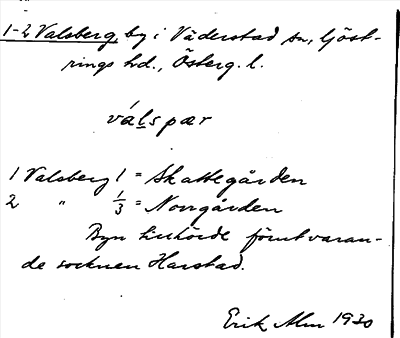 1-2 Valsberg, by i Väderstad sn, Göst-
rings hd., Österg. l.
válspær
1 Valsberg 1 = Skattegården
2 " 1/3 = Norrgården
Byn tillhörde förut varan-
de socknen Harstad.
Erik Alm 1930